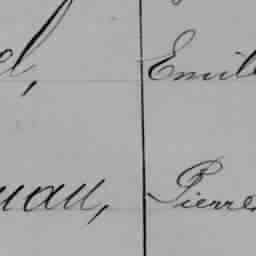 el, Emile
uau, Pierre